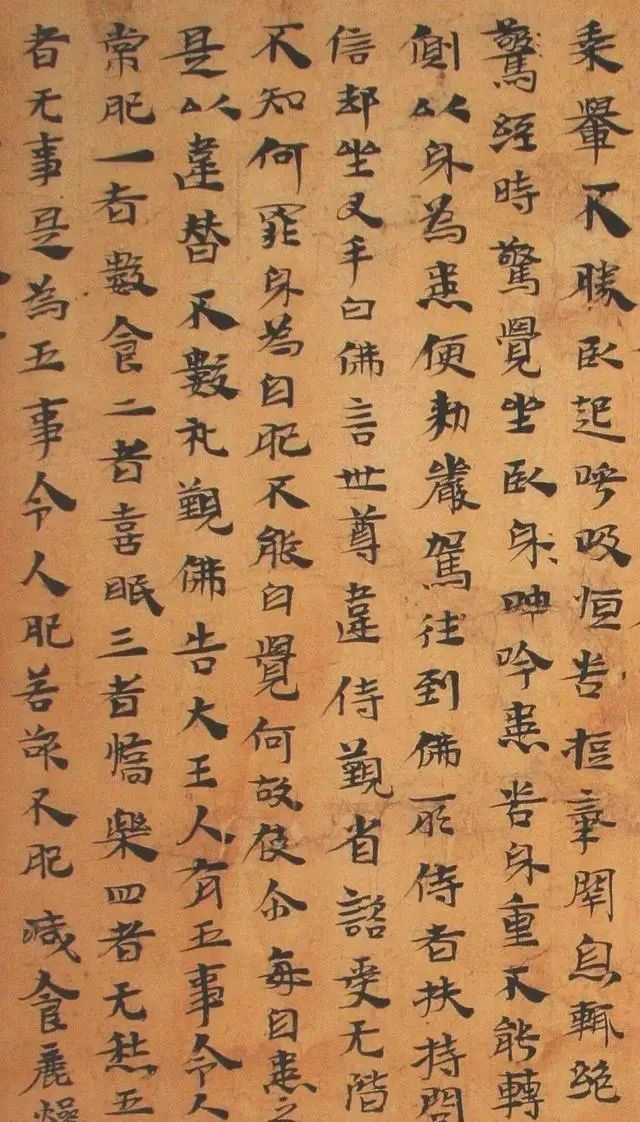 乗轝不勝卧起呼吸恒苦拒𣱛閇息輒絶
驚経時驚覺坐卧身呻吟患苦身重不能轉
側以身為患便勑嚴駕往到佛所侍者扶持問
信却坐叉手白佛言世尊違侍覲省諮受无階
不知何罪身為自肥不能自覺何故使尒每自患之
是以違替不數礼覲佛告大王人有五事令人
常肥一者數食二者喜眠三者憍樂四者无愁五
者无事是為五事令人肥若欲不肥减食麁燥